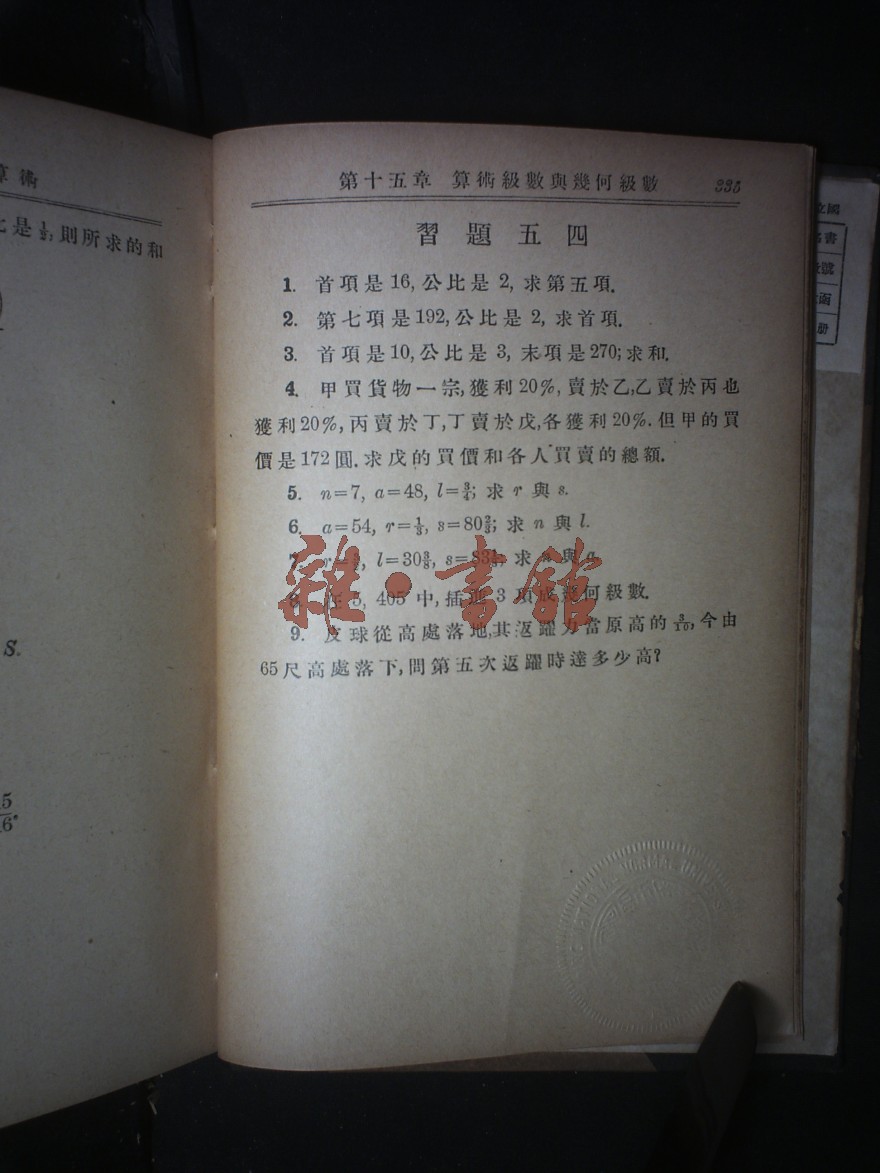 算術
是 1/2, 則所求的和
S.
第十五章 算術級數與幾何級數 335
習題五四
1. 首項是16, 公比是 2, 求第五項.
2. 第七項是192, 公比是 2, 求首項.
3. 首項是10, 公比是 3, 末項是270; 求和.
4. 甲買貨物一宗, 獲利20%, 賣於乙, 乙賣於丙也
獲利20%, 丙賣於丁, 丁賣於戊, 各獲利20%. 但甲的買
價是172圓. 求戊的買價和各人買賣的總額.
5. n=7, a=48, l=3/4; 求 r 與 s.
6. a=54, r=1/3, s=80 2/3; 求 n 與 l.
7. l=30 3/8, 求 與 a.
8. 在 5, 405 中, 插進 3 項成幾何級數.
9. 皮球從高處落地, 其返躍力當原高的 3/10, 今由
65尺高處落下, 問第五次返躍時達多少高?
雜·書館